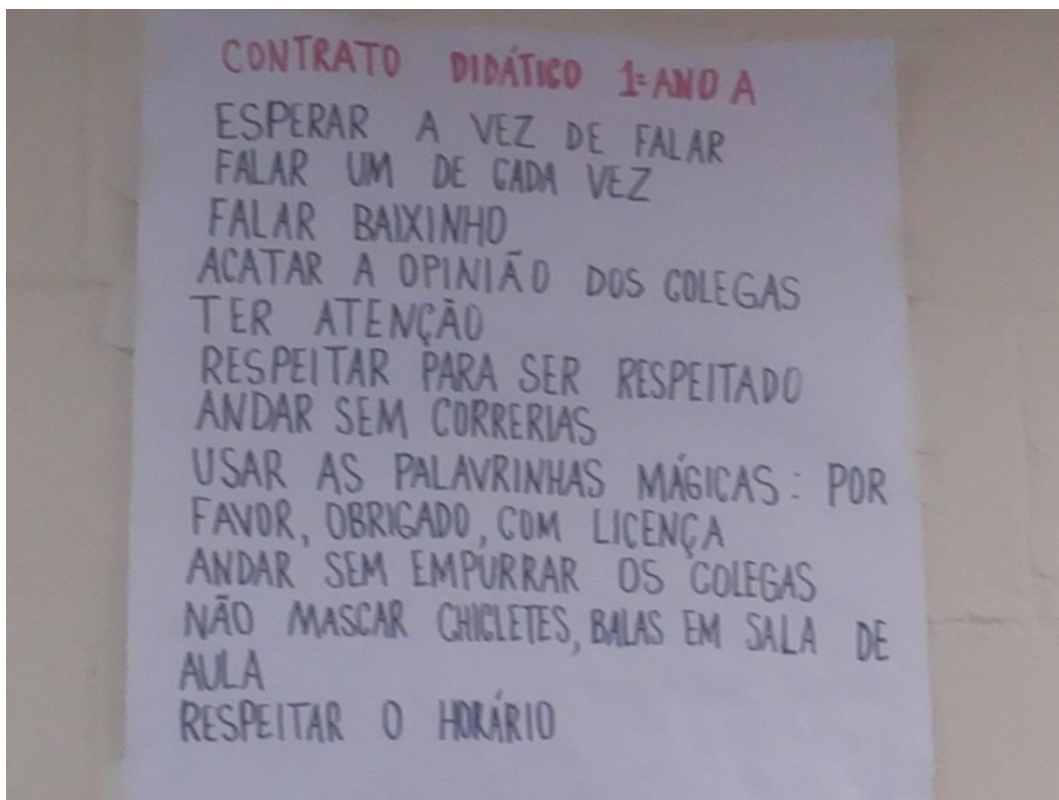 CONTRATO DIDÁTICO 1º ANO A
ESPERAR A VEZ DE FALAR
FALAR UM DE CADA VEZ
FALAR BAIXINHO
ACATAR A OPINIÃO DOS COLEGAS
TER ATENÇÃO
RESPEITAR PARA SER RESPEITADO
ANDAR SEM CORRERIAS
USAR AS PALAVRINHAS MÁGICAS: POR
FAVOR, OBRIGADO, COM LICENÇA
ANDAR SEM EMPURRAR OS COLEGAS
NÃO MASCAR CHICLETES, BALAS EM SALA DE
AULA
RESPEITAR O HORÁRIO